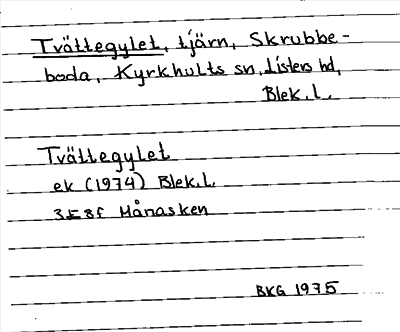 Tvättegylet, tjärn, Skrubbe-
boda, Kyrkhults sn, Listers hd,
Blek.l.
Tvättegylet
ek (1974) Blek.L.
3E8f Hånasken
BKG 1975